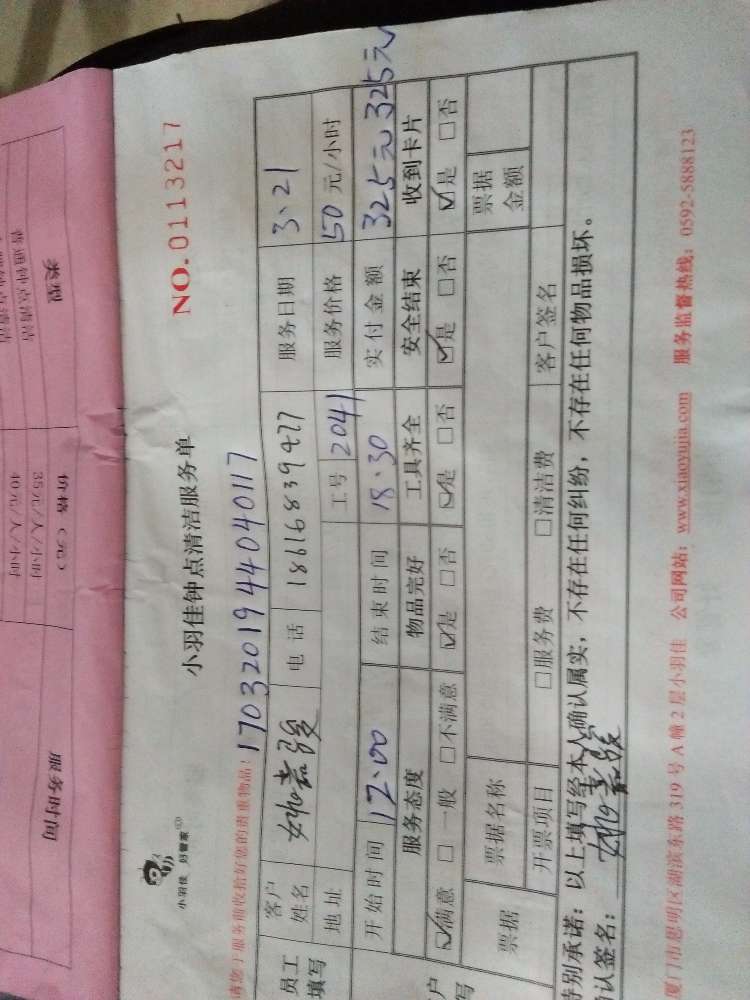 类型
价格（元）
服务时间
普通钟点清洁
35元/人/小时
40元/人/小时
小羽佳 好管家
小羽佳钟点清洁服务单
NO.0113217
请您于服务前收拾好您的贵重物品！1703201944040117
员工填写
客户姓名 电话 18616839477 服务日期 3.21
地址 工号 2041 服务价格 50元/小时
开始时间 12:00 结束时间 18:30 实付金额 325元 325元
服务态度 物品完好 工具齐全 安全结束 收到卡片
☑满意 □一般 □不满意 ☑是 □否 ☑是 □否 ☑是 □否 ☑是 □否
票据 票据名称 票据金额
开票项目 □服务费 □清洁费 客户签名
特别承诺：以上填写经本人确认属实，不存在任何纠纷，不存在任何物品损坏。
认签名：
厦门市思明区湖滨东路319号A幢2层小羽佳 公司网站：www.xiaoyujia.com 服务监督热线：0592-5888123